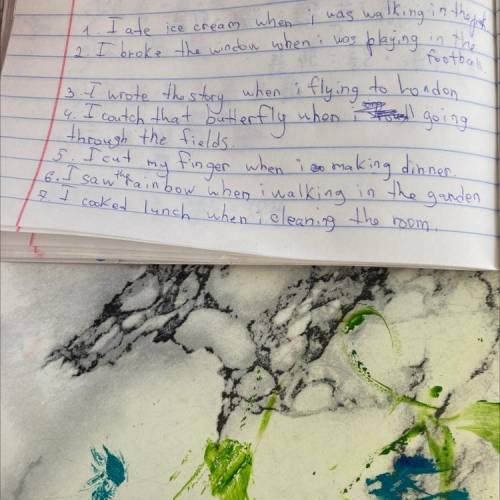 1. I ate ice cream when i was walking in the park
2. I broke the window when i was playing in the
football.
3. I wrote the story when i flying to London
4. I catch that butterfly when going
through the fields.
5. I cut my finger when i making dinner.
6. I saw the rainbow when i walking in the garden
7. I cooked lunch when i cleaning the room.